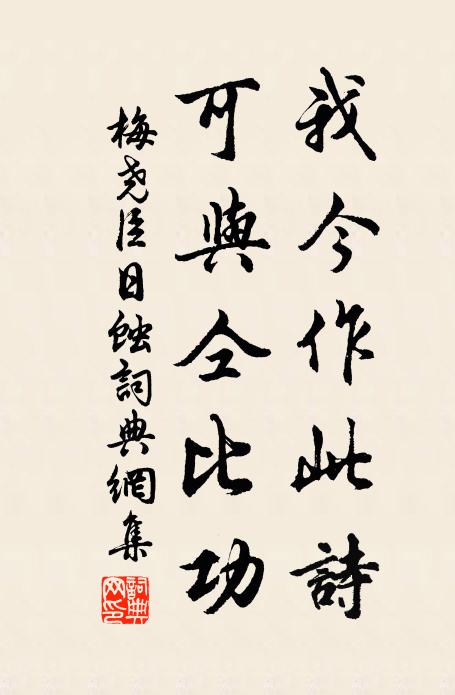 我今作此詩
可與仝比功
梅尧臣日蝕詞典網集
詞典網印